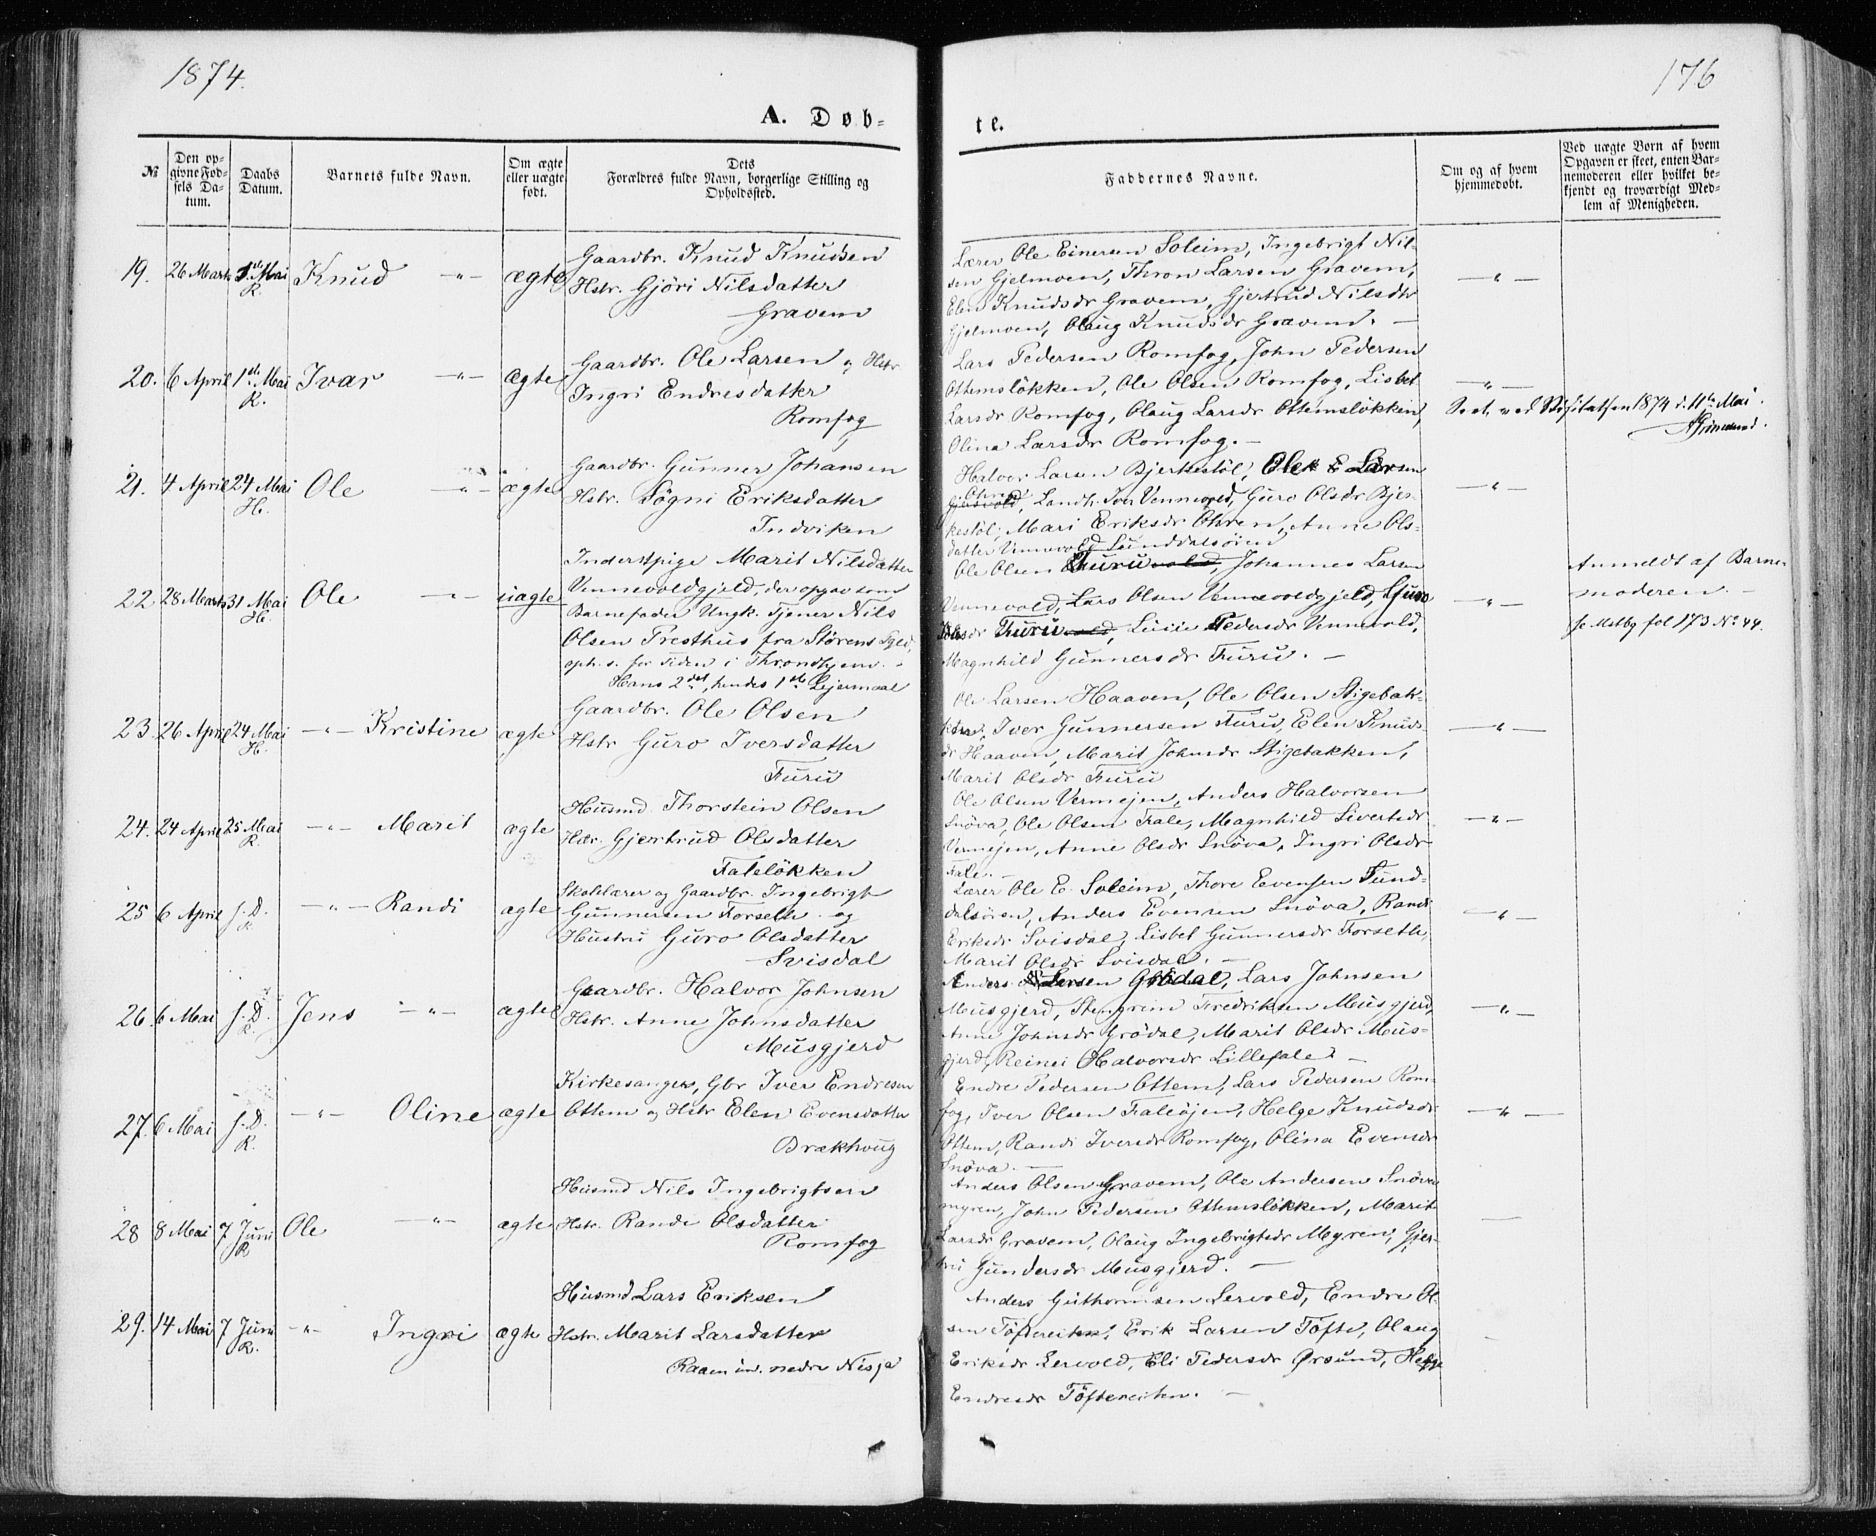 1874.
176
A. Døb-
te.
№
Den op-
givne Fød-
sels Da-
tum.
Daabs
Datum.
Barnets fulde Navn.
Om ægte
eller uægte
født.
Dets
Forældres fulde Navn, borgerlige Stilling og
Opholdssted.
Faddernes Navne.
Om og af hvem
hjemmedøbt.
Ved uægte Børn af hvem
Opgaven er skeet, enten Bar-
nemoderen eller hvilket be-
kjendt og troværdigt Med-
lem af Menigheden.
19. 26 Marts 1ste Mai R. Knud -"- ægte
Gaardbr. Knud Knudsen
Hstr. Gjöri Nilsdatter
Gravem
Lærer Ole Einersen Soleim, Ingebrigt Nil-
sen Gjelmoen, Thron Larsen Gravem,
Elen Knudsdr Gravem, Gjertrud Nilsdtr
Gjelmoen, Olaug Knudsdr Gravem. -
-"-
20. 6 April 1ste Mai R. Ivar -"- ægte
Gaardbr. Ole Larsen og Hstr
Ingri Endresdatter
Romfog
Lars Pedersen Romfog, John Pedersen
Ottemslökken, Ole Olsen Romfog, Lisbet
Larsdr Romfog, Olaug Larsdr Ottemslökken,
Olina Larsdr Romfog. -
-"-
Seet ved Visitatsen 1874 d. 11te Mai.
21. 4 April 24 Mai H. Ole -"- ægte
Gaardbr. Gunner Johansen
Hstr. Sögni Eriksdatter
Indviken
Halvor Larsen Bjerkestöl, Ole Larsen
Ohren
Landh. Iver Vennevold, Guro Olsdr Bjer-
kestöl, Mari Eriksdr Ohren, Anne Ols-
datter Vennevold
-"-
22 28 Marts 31 Mai H. Ole -"- uægte
Inderstpige Marit Nilsdatter
Vennevoldgjeld, der opgav som
Barnefader Ungk. Tjener Nils
Olsen Presthus fra Störens Pgld,
oph. s. for Tiden i Throndhjem. -
Hans 2det, hendes 1ste Lejermaal
Sunddalsören
Ole Olsen Furuvold, Johannes Larsen
Vennevold, Lars Olsen Vennevoldgjeld, Guro
Furuvold, Lucie Pedersdr Vennevold,
Magnhild Gunnersdr Furu. -
-"-
Anmeldt af Barne-
moderen. -
fol 173 No 44.
23. 26 April 24 Mai H. -"- Kristine ægte
Gaardbr. Ole Olsen
Hstr Guro Iversdatter
Furu
Ole Larsen Haaven, Ole Olsen Stigebak-
ken, Iver Gunnersen Furu, Elen Knuds-
dr Haaven, Marit Johnsdr Stigebakken,
Marit Olsdr Furu
-"-
24. 24 April 25 Mai R. -"- Marit ægte
Husmd. Thorstein Olsen
Hstr. Gjertrud Olsdatter
Falelökken
Ole Olsen Vermejen, Anders Halvorsen
Snöva, Ole Olsen Fale, Magnhild Sivertsdr
Vermejen, Anne Olsdr Snöva, Ingri Olsdr
Fale. -
-"-
25 6 April s. D. R -"- Randi ægte
Skolelærer og Gaardbr. Ingebrigt
Gunnersen Forseth og
Hustru Guro Olsdatter
Svisdal
Lærer Ole E. Soleim, Thore Evensen Sund-
dalsören, Anders Evensen Snöva, Randi
Eriksdr Svisdal, Lisbet Gunnersdr Forseth,
Marit Olsdr Svisdal. -
-"-
26. 6 Mai s. D. R. Jens -"- ægte
Gaardbr. Halvor Johnsen
Hstr. Anne Johnsdatter
Musgjerd
Anders Larsen Grödal, Lars Johnsen
Musgjerd, Stengrim Fredriksen Musgjerd,
Anne Johnsdr Grödal, Marit Olsdr Mus-
gjerd, Reinei Halvorsdr Lillefale. -
-"-
27. 6 Mai s. D. R. -"- Oline ægte
Kirkesanger, Gbr Iver Endresen
Ottem og Hstr Elen Evensdatter
Brækhoug
Endre Pedersen Ottem, Lars Pedersen Rom-
fog, Iver Olsen Faleöjen, Helge Knudsdr
Ottem, Randi Iversdr Romfog, Olina Evensdr
Snöva. -
-"-
28 8 Mai 7 Juni R Ole -"- ægte
Husmd Nils Ingebrigtsen
Hstr. Randi Olsdatter
Romfog
Anders Olsen Gravem, Ole Andersen Snöva
myren, John Pedersen Ottemslökken, Marit
Larsdr Gravem, Olaug Ingebrigtsdr Myren, Gjer-
tru Gundersdr Musgjerd. -
29. 14 Mai 7 Juni R. -"- Ingri ægte
Husmd Lars Eriksen
Hstr. Marit Larsdatter
Raaen in. nedre Nisja
Anders Guthormsen Lervold, Endre Ol-
sen Töftereiten, Erik Larsen Töfte, Olaug
Eriksdr Lervold, Eli Pedersdr Ørsund, Helge
Endresdr Töftereiten. -